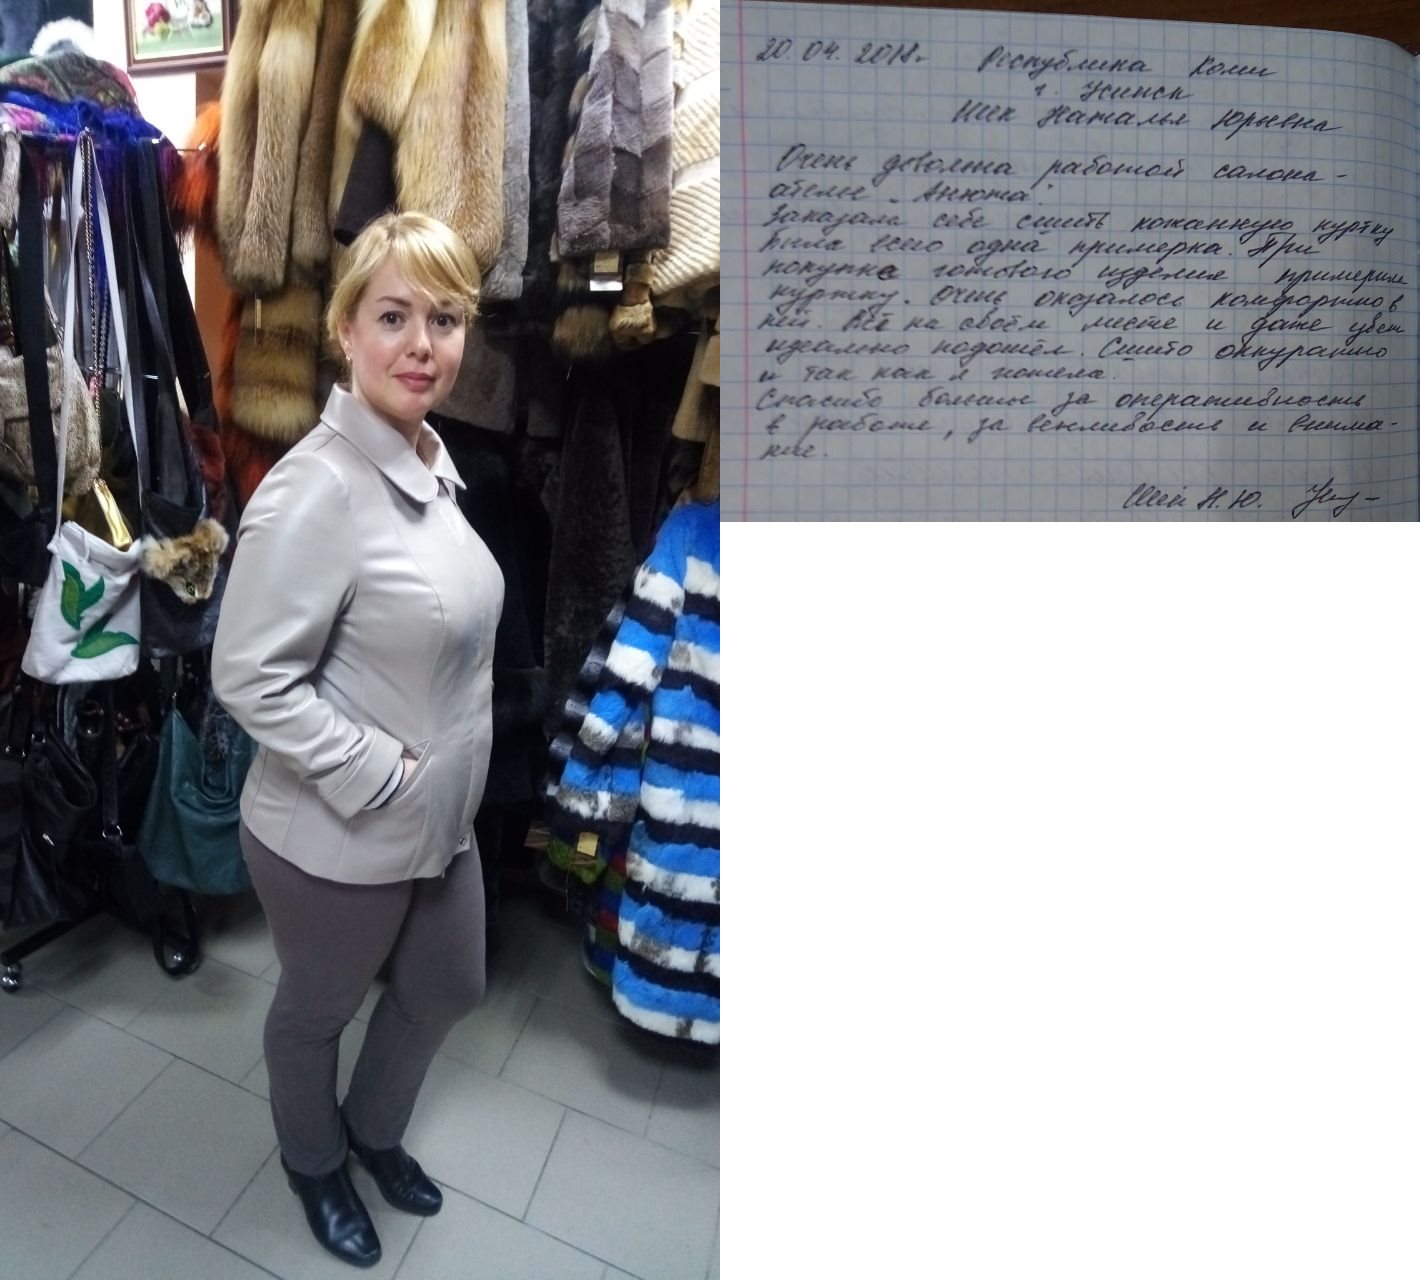 20.04.2018г Республика Коми
г. Усинск
Наталья Юрьевна
Очень довольна работой салона-
ателье "Анюта".
Заказала себе сшить кожанную куртку
была всего одна примерка. При
покупке готового изделия примерила
куртку. Очень оказалось комфортно в
ней. Всё на своём месте и даже цвет
идеально подошёл. Сшито аккуратно
и так как я хотела.
Спасибо большое за оперативность
в работе, за вежливость и внима-
ние.
Н.Ю.